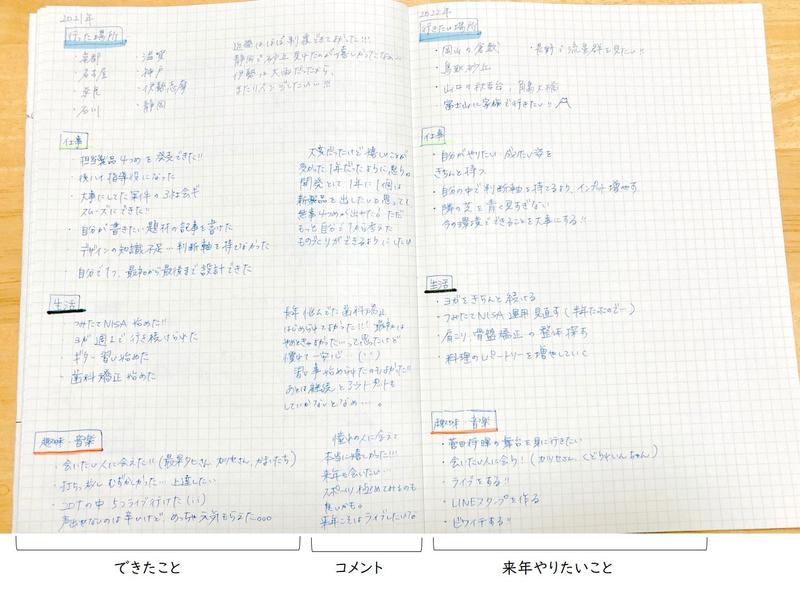 2021年
行った場所
・京都
・名古屋
・奈良
・石川
・滋賀
・神戸
・伊勢志摩
・静岡
近畿はほぼ制覇できてよかった!!!
伊勢は大雨だったから、
またリベンジしたい!!!
仕事
・担当製品4つめを発売できた!!
・後輩指導役になった
・大事にしてた案件の
スムーズにできた!!
・自分が書きたい題材の記事を書けた
・デザインの知識不足…判断軸を持てなかった
・自分で1つ、最初から最後まで設計できた
大変だったけど嬉しいことが
多かった1年だったように思う。
開発として1年に1個は
新製品を出したいと思ってて
無事4つめが出せた。ただ
もっと自分で1から考えた
ものづくりができるようにしたい
生活
・つみたてNISA 始めた!!
・ヨガ 週1で行き続けられた
・ギター習い始めた
・歯科矯正始めた
長年悩んでた歯科矯正
はじめられてよかった!!! 最初は
やめときゃよかった…って思ったけど
慣れて一安心
習い事始められたのもよかった!!
あとは継続とアウトプットも
していかないとなぁ…。
趣味・音楽
・会いたい人に会えた!!
・打ち込み むずかしかった… 上達したい
・コロナの中 5つライブ行けた
声出せないのは辛いけど、めっちゃ元気もらえた。。。
憧れの人に会えて
本当に嬉しかった!!!
来年も会いたい…
スポーツ極めてみるのも
良いかも。
来年こそはライブしたい?。
2022年
行きたい場所
・岡山の倉敷
・鳥取砂丘
・山口の秋吉台、角島大橋
・富士山に家族で行きたい!!
・長野で流星群を見たい!!
仕事
・自分がやりたい・成りたい姿を
きちんと持つ
・自分の中で判断軸を持てるよう、インプット増やす
・隣の芝を青く見すぎない
今の環境でできることを大事にする!!
生活
・ヨガをきちんと続ける
・つみたてNISA 運用見直す
・肩こり、骨盤矯正の整体探す
・料理のレパートリーを増やしていく
趣味・音楽
・菅田将暉の舞台を見に行きたい
・会いたい人に会う!
・ライブをする!!
・LINEスタンプを作る
・ビワイチする!!
できたこと
コメント
来年やりたいこと